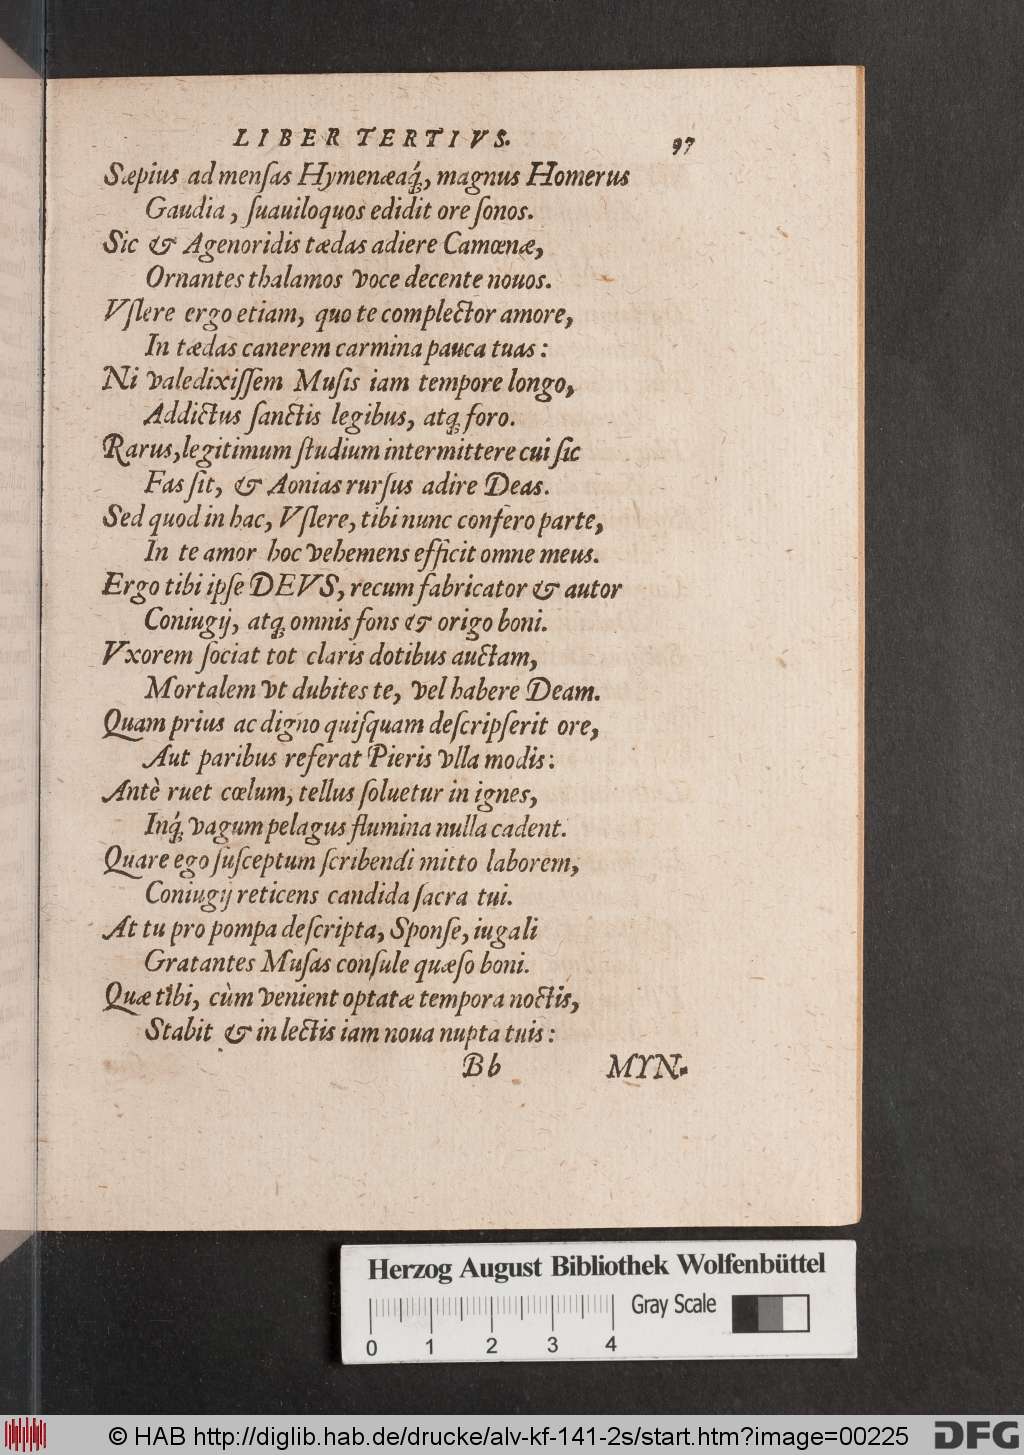 LIBER TERTIVS. 97
Sæpius ad menſas Hymenæaq́, magnus Homerus
Gaudia, ſuauiloquos edidit ore ſonos.
Sic & Agenoridis tædas adiere Camœnæ,
Ornantes thalamos voce decente nouos.
Vſlere ergo etiam, quo te complector amore,
In tædas canerem carmina pauca tuas:
Ni valedixiſſem Muſis iam tempore longo,
Addictus ſanctis legibus, atq; foro.
Rarus, legitimum ſtudium intermittere cui ſic
Fas ſit, & Aonias rurſus adire Deas.
Sed quod in hac, Vſlere, tibi nunc confero parte,
In te amor hoc vehemens efficit omne meus.
Ergo tibi ipſe DEVS, recum fabricator & autor
Coniugij, atq; omnis fons & origo boni.
Vxorem ſociat tot claris dotibus auctam,
Mortalem vt dubites te, vel habere Deam.
Quam prius ac digno quiſquam deſcripſerit ore,
Aut paribus referat Pieris vlla modis:
Antè ruet cœlum, tellus ſoluetur in ignes,
Inq́; vagum pelagus flumina nulla cadent.
Quare ego ſuſceptum ſcribendi mitto laborem,
Coniugij reticens candida ſacra tui.
At tu pro pompa deſcripta, Sponſe, iugali
Gratantes Muſas conſule quæſo boni.
Quæ tibi, cùm venient optatæ tempora noctis,
Stabit & in lectis iam noua nupta tuis:
Bb MYN-
Herzog August Bibliothek Wolfenbüttel
Gray Scale
0 1 2 3 4
© HAB http://diglib.hab.de/drucke/alv-kf-141-2s/start.htm?image=00225
DFG